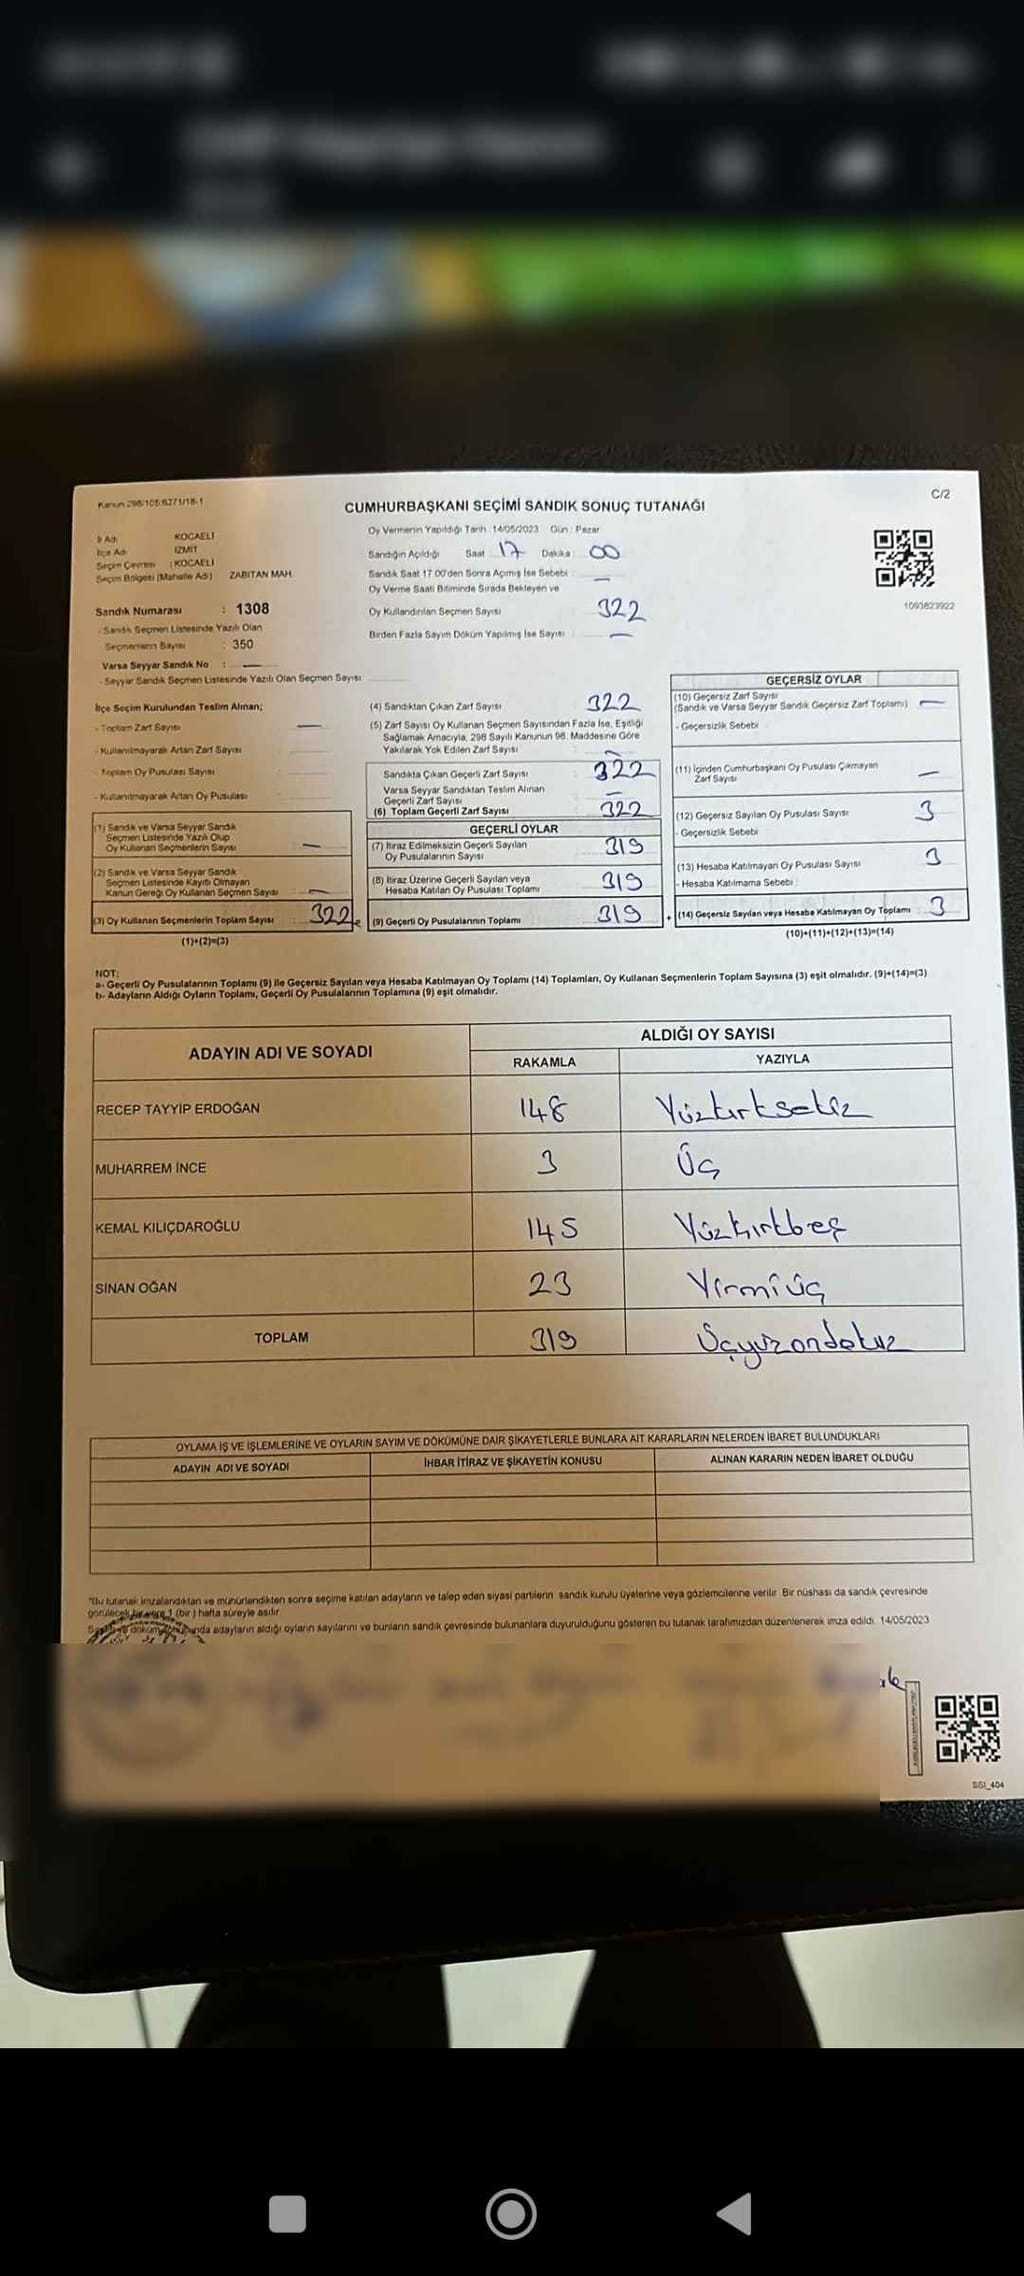 Kanun 298/105:6271/18-1
CUMHURBAŞKANI SEÇİMİ SANDIK SONUÇ TUTANAĞI
C/2
İl Adı KOCAELİ
İlçe Adı İZMİT
Seçim Çevresi : KOCAELİ
Seçim Bölgesi (Mahalle Adı) ZABITAN MAH.
Sandık Numarası : 1308
- Sandık Seçmen Listesinde Yazılı Olan
Seçmenlerin Sayısı : 350
Varsa Seyyar Sandık No : —
- Seyyar Sandık Seçmen Listesinde Yazılı Olan Seçmen Sayısı
Oy Vermenin Yapıldığı Tarih 14/05/2023 Gün : Pazar
Sandığın Açıldığı Saat 17 Dakika : 00
Sandık Saat 17.00'den Sonra Açılmış İse Sebebi : —
Oy Verme Saati Bitiminde Sırada Bekleyen ve
Oy Kullandırılan Seçmen Sayısı 322
Birden Fazla Sayım Döküm Yapılmış İse Sayısı : —
1093823922
İlçe Seçim Kurulundan Teslim Alınan;
- Toplam Zarf Sayısı —
- Kullanılmayarak Artan Zarf Sayısı
- Toplam Oy Pusulası Sayısı
- Kullanılmayarak Artan Oy Pusulası
(1) Sandık ve Varsa Seyyar Sandık
Seçmen Listesinde Yazılı Olup
Oy Kullanan Seçmenlerin Sayısı : —
(2) Sandık ve Varsa Seyyar Sandık
Seçmen Listesinde Kayıtlı Olmayan
Kanun Gereği Oy Kullanan Seçmen Sayısı : —
(3) Oy Kullanan Seçmenlerin Toplam Sayısı : 322
(1)+(2)=(3)
(4) Sandıktan Çıkan Zarf Sayısı 322
(5) Zarf Sayısı Oy Kullanan Seçmen Sayısından Fazla İse, Eşitliği
Sağlamak Amacıyla, 298 Sayılı Kanunun 98. Maddesine Göre
Yakılarak Yok Edilen Zarf Sayısı —
Sandıkta Çıkan Geçerli Zarf Sayısı 322
Varsa Seyyar Sandıktan Teslim Alınan
Geçerli Zarf Sayısı —
(6) Toplam Geçerli Zarf Sayısı 322
GEÇERLİ OYLAR
(7) İtiraz Edilmeksizin Geçerli Sayılan
Oy Pusulalarının Sayısı 319
(8) İtiraz Üzerine Geçerli Sayılan veya
Hesaba Katılan Oy Pusulası Toplamı 319
(9) Geçerli Oy Pusulalarının Toplamı 319
GEÇERSİZ OYLAR
(10) Geçersiz Zarf Sayısı
(Sandık ve Varsa Seyyar Sandık Geçersiz Zarf Toplamı) —
- Geçersizlik Sebebi
(11) İçinden Cumhurbaşkanı Oy Pusulası Çıkmayan
Zarf Sayısı —
(12) Geçersiz Sayılan Oy Pusulası Sayısı 3
- Geçersizlik Sebebi
(13) Hesaba Katılmayan Oy Pusulası Sayısı 3
- Hesaba Katılmama Sebebi
(14) Geçersiz Sayılan veya Hesaba Katılmayan Oy Toplamı 3
(10)+(11)+(12)+(13)=(14)
NOT:
a- Geçerli Oy Pusulalarının Toplamı (9) ile Geçersiz Sayılan veya Hesaba Katılmayan Oy Toplamı (14) Toplamları, Oy Kullanan Seçmenlerin Toplam Sayısına (3) eşit olmalıdır. (9)+(14)=(3)
b- Adayların Aldığı Oyların Toplamı, Geçerli Oy Pusulalarının Toplamına (9) eşit olmalıdır.
ADAYIN ADI VE SOYADI ALDIĞI OY SAYISI
RAKAMLA YAZIYLA
RECEP TAYYİP ERDOĞAN 148 Yüzkırksekiz
MUHARREM İNCE 3 Üç
KEMAL KILIÇDAROĞLU 145 Yüzkırkbeş
SİNAN OĞAN 23 Yirmiüç
TOPLAM 319 Üçyüzondokuz
OYLAMA İŞ VE İŞLEMLERİNE VE OYLARIN SAYIM VE DÖKÜMÜNE DAİR ŞİKAYETLERLE BUNLARA AİT KARARLARIN NELERDEN İBARET BULUNDUKLARI
ADAYIN ADI VE SOYADI İHBAR İTİRAZ VE ŞİKAYETİN KONUSU ALINAN KARARIN NEDEN İBARET OLDUĞU
*Bu tutanak imzalandıktan ve mühürlendikten sonra seçime katılan adayların ve talep eden siyasi partilerin sandık kurulu üyelerine veya gözlemcilerine verilir. Bir nüshası da sandık çevresinde
görülecek bir yere 1 (bir) hafta süreyle asılır.
adayların aldığı oyların sayılarını ve bunların sandık çevresinde bulunanlara duyurulduğunu gösteren bu tutanak tarafımızdan düzenlenerek imza edildi. 14/05/2023
SGI_404